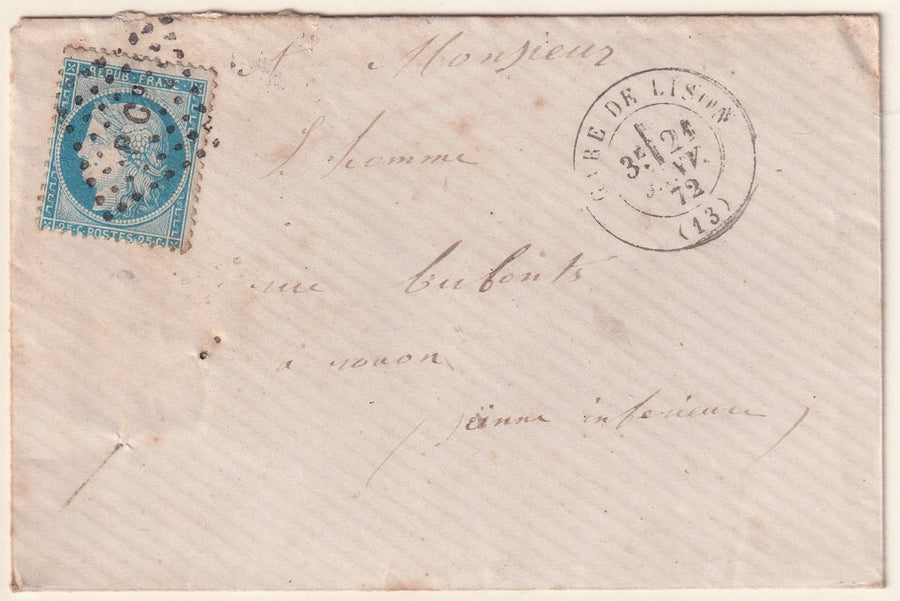 REPUB · FRANC
25 C. POSTES 25 C.
GARE DE LISON
3E 24
JANV.
72
(13)
A Monsieur
L homme
rue
a rouon
(séinne inferieure)